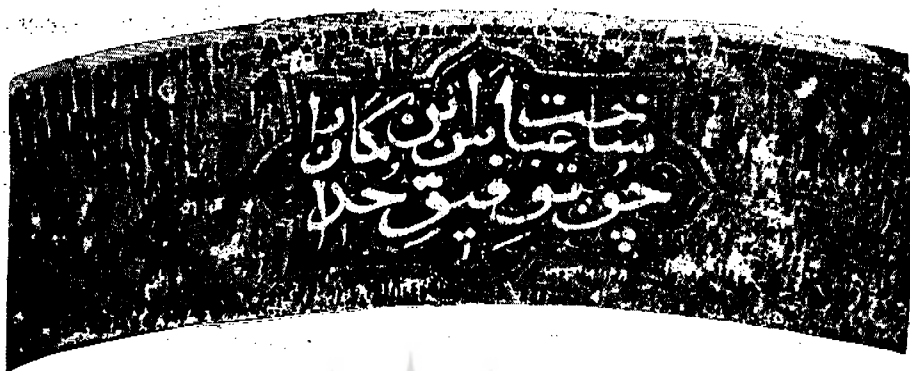 ساخت عباس این مکان را
چون بتوفیق خدا